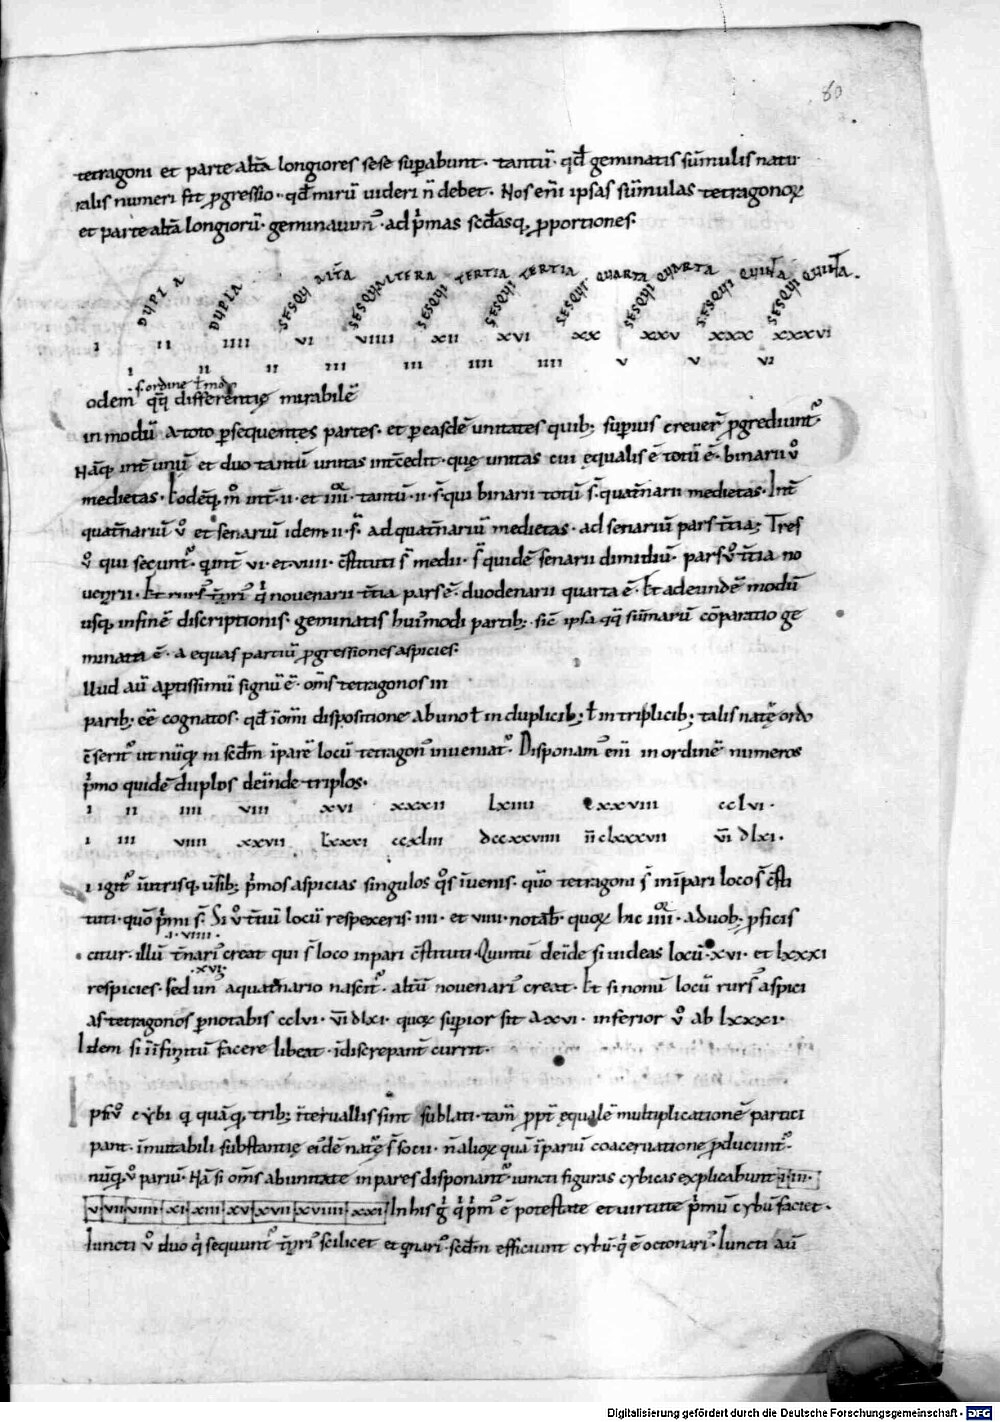 60
tetragoni et parte altā longiores sese supabunt. tantū. qd geminatis sūmulis natu
ralis numeri fit pgressio. qd mirū uideri n debet. Nos eni ipsas sūmulas tetragonoꝝ
et parte altā longiorū. geminauim. ad pmas scdasq, pportiones.
DUPLA DUPLA SESQUI ALTA SESQUI ALTERA SESQUI TERTIA SESQUI TERTIA SESQUI QUARTA SESQUI QUARTA SESQUI QUINTA SESQUI QUINTA.
ı ıı ıııı vı vıııı xıı xvı xx xxv xxx xxxvı
ı ıı ıı ııı ııı ıııı ıııı v v vı
s. ordine ł modo
odem qq differentię mirabilē
in modū a toto psequentes partes. et p easdē unitates quib; supius creuer pgrediunt.
Nāq, int unū et duo tantū unitas intcedit. quę unitas cui ęqualis ē totū ē. binarii v
medietas. Eodēq, m int. ıı. et ıııı. tantū. ıı. s. qui binarii totū s. quatnarii medietas. Int
quatnariū v et senariū idem. ıı. s. ad quatnariū medietas. ad senariū pars ttia; Tres
v qui secunt. q int vı. et vıııı. cstituti s medii. s quidē senarii dimidiū. pars v ttia no
uenarii. Et rurs tnari q nouenarii ttia pars ē. duodenarii quarta ē. Et ad eundē modū
usq, in finē discriptionis. geminatis huimodi partib; sic ipsa qq sūmarū cōparatio ge
minata ē. a equas partiū pgressiones aspicies.
Illud aū aptissimū signū ē. oms tetragonos in
parib; eē cognatos. qd i omi dispositione ab uno ł in duplicib; ł in triplicib; talis natę ordo
cserit ut nuq ni scdm iparē locū tetragon inueniat. Disponam eni in ordinē numeros
pmo quidē duplos deinde triplos.
ı ıı ıııı vııı xvı xxxıı lxıııı cxxvııı cclvı.
ı ııı vıııı xxvıı lxxxı ccxlııı dccxxvıııı ıı clxxxvıı vı dlxı.
I igit in utrisq, usib; pmos aspicias singulos qs inuenis. quo tetragoni s in inpari loco s csti
tuti. quo pmi s. Si v ttiū locū respexeris. ıııı. et vıııı. notab. quoꝝ hic ıııı. a duob; pficis
.ı. vıııı.
citur. illū tnari creat qui s loco inpari cstituti. Quintū deide si uideas locū. xvı. et lxxxı
.xvı.
respicies. sed un a quatnario nascit. altū nouenari creat. Et si nonū locū rurs aspici
as tetragonos pnotabis cclvı. vı dlxı. quoꝝ supior fit a xvı. inferior v ab lxxxı.
Idem si in infinitū facere libeat. idiscrepant currit.
Ipsi v cybi q quāq, trib; interuallis sint sublati. tam ppt ęqualē multiplicationē partici
pant. inmutabili substantię eidē natę s socii. n alioꝝ quā iparium coaceruatione pducunt.
nūq, v pariū. Nā si oms ab unitate inpares disponant iuncti figuras cybicas explicabunt ı. ııı.
v vıı vıııı xı xııı xv xvıı xvıııı xxı In his g q pm ē potestate et uirtute pmū cybū faciet.
Iuncti v duo q sequunt tnari scilicet et qnari. scdm efficiunt cybū. q ē octonari. Iuncti aū
Digitalisierung gefördert durch die Deutsche Forschungsgemeinschaft - DFG